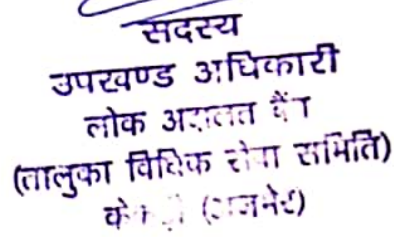 सदस्य
उपखण्ड अधिकारी
लोक अदालत बैंच
(तालुका विधिक सेवा समिति)
(अजमेर)